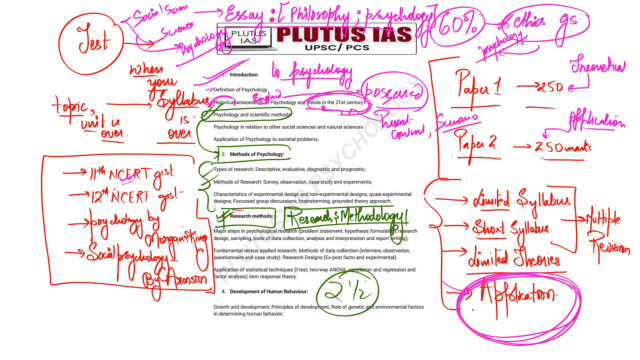 Social Exam → Essay: [Philosophy; psychology] 60% → Ethics gs
Science
Psychology
Test
psychology
PLUTUS IAS
PLUTUS
IAS
UPSC/ PCS
when
your
Syllabus
is
over
topic,
unit is
over
Introduction:
to psychology
Definition of Psychology
Historical antecedents of Psychology and trends in the 21st century
Psychology and scientific methods
Psychology in relation to other social sciences and natural sciences
Application of Psychology to societal problems.
Present-
content, Scenario
2. Methods of Psychology:
Types of research: Descriptive, evaluative, diagnostic and prognostic;
Methods of Research: Survey, observation, case-study and experiments;
Characteristics of experimental design and non-experimental designs; quasi-experimental
designs; Focussed group discussions, brainstorming, grounded theory approach.
Research methods: Research Methodology
Major steps in psychological research (problem statement, hypothesis formulation, research
design, sampling, tools of data collection, analysis and interpretation and report writing);
Fundamental versus applied research; Methods of data collection (interview, observation,
questionnaire and case study). Research Designs (Ex-post facto and experimental).
Application of statistical techniques (t-test, two-way ANOVA, correlation and regression and
factor analysis) item response theory.
2½
4. Development of Human Behaviour:
Growth and development; Principles of development, Role of genetic and environmental factors
in determining human behavior;
→ 11th NCERT gist
→ 12th NCERT gist
→ psychology by
Morgan King
→ Social psychology
By Aronson
Theoretical
Paper 1 → 250
Application
Paper 2 → 250 marks
→ Limited Syllabus
→ Short Syllabus
→ Limited Theories
→ Application
Multiple
Revision